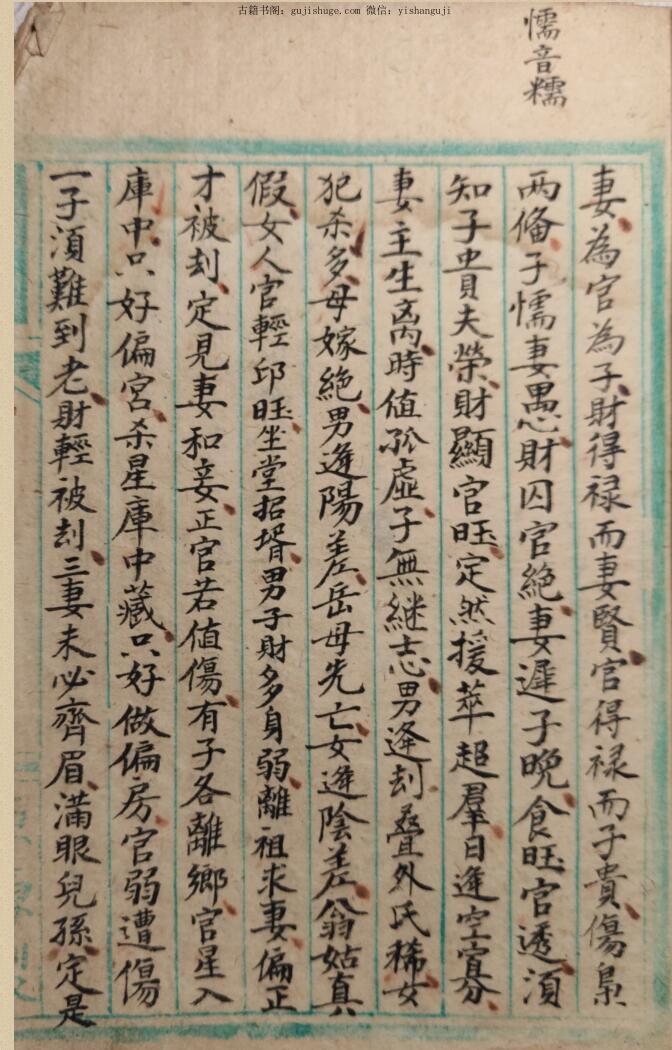 古籍书阁：gujishuge.com 微信：yishanguji
懦音糯
妻為官為子財得禄而妻賢官得禄而子貴傷梟
两偹子懦妻愚財囚官絶妻遲子晚食旺官透湏
知子貴夫榮財顯官旺定然援萃超羣日逢空寡
妻主生离時值孤虛子無継志男逢刦疊外氏稀女
犯杀多母嫁絶男逢陽差岳母先亡女逢陰差翁姑真
假女人官輕邱旺坐堂招壻男子財多身弱離祖求妻偏正
才被刦定見妻和妾正官若值傷有子各離鄉官星入
庫中只好偏宮杀星庫中藏只好做偏房官弱遭傷
一子湏難到老財輕被刦三妻未必齊眉滿眼兒孫定是